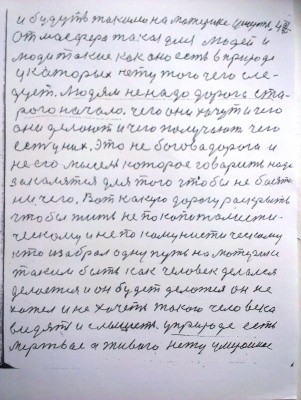 и будутъ такими на материке
Отмасфера такая для людей и
люди такие как оно есть в природе
у каторых нету того чего сле-
дует. Людям не надо дорога ста-
рого начало. чего они хочут и чего
они делают и чего получают чего
есть у них. Это не богова дорога и
не его мысль которое говарить надо
закалятся для того чтобы не баятся
ни чего. Вот какую дорогу раскрыть
чтобы жить не по копиталисти-
ческому и не по комунистическому
кто избрал одну путь на материке
таким быть как человек делался
делается и он будет делатся он не
хотел и не хочеть такого человека
видять и слышеть. у природе есть
мертвае а живого нету